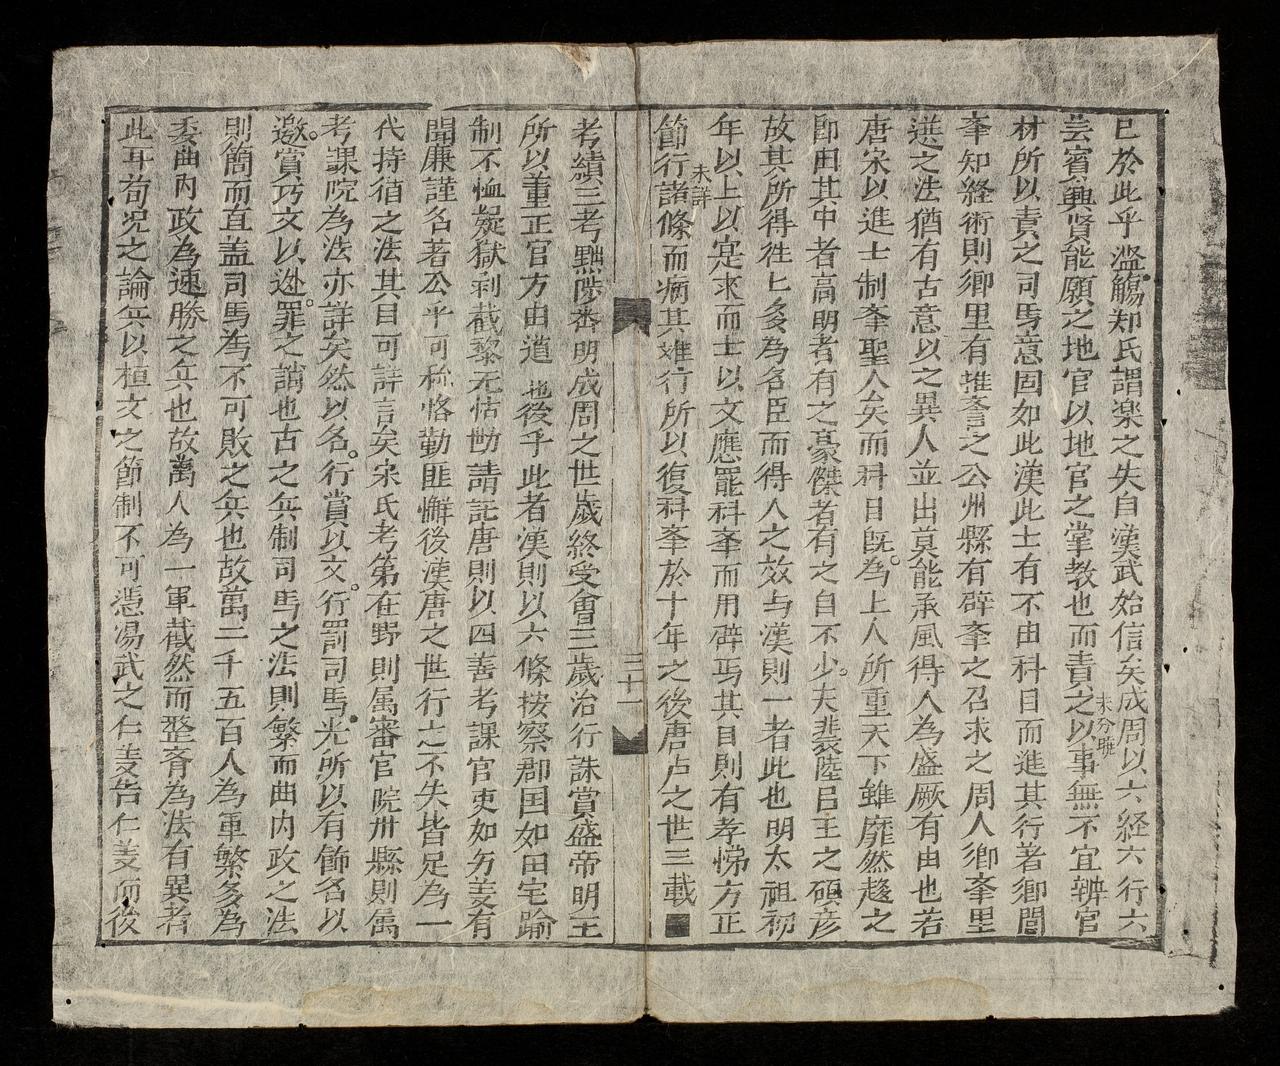 已於此乎濫觴郑氏謂楽之失自漢武始信矣成周以六経六行六
芸賓興賢能願之地官以地官之掌教也而責之以事無不宜辨官
未分曉
材所以責之司馬意固如此漢此士有不由科目而進其行著鄉閭
孝知経術則鄉里有推孝之公州縣有辟孝之召求之周人鄉孝里
選之法猶有古意以之異人並出莫能承風得人為盛厥有由也若
唐宋以進士制孝聖人矣而科目既為上人所重天下雖靡然趍之
即田其中者高明者有之豪傑者有之自不少夫裴陸吕王之碩彦
故其所得徃匕多為名臣而得人之效与漢則一者此也明太祖初
年以上以寔求而士以文應罷科孝而用辟焉其目則有孝悌方正
節行諸條而病其难行所以復科孝於十年之後唐卢之世三載
未詳
三十一
考績三考黜陟畨明成周之世歲終受會三歲治行誅賞盛帝明王
所以董正官方由道也後乎此者漢則以六條按察郡国如田宅踰
制不恤疑獄剥截黎元怙勢請託唐則以四善考課官吏如労姜有
聞廉謹名著公平可称恪勤匪懈後漢唐之世行之不失皆足為一
代持循之法其目可詳言矣宋氏考第在野則属審官院卅縣則属
考課院為法亦詳矣然以名行賞以文行罰司馬光所以有飾名以
邀賞巧文以迯罪之誚也古之兵制司馬之法則繁而曲内政之法
則簡而直盖司馬為不可敗之兵也故萬二千五百人為軍繁多為
委曲内政為速勝之兵也故萬人為一軍截然而整斉為法有異者
此耳荀況之論兵以桓文之節制不可憑湯武之仁姜告仁姜而後